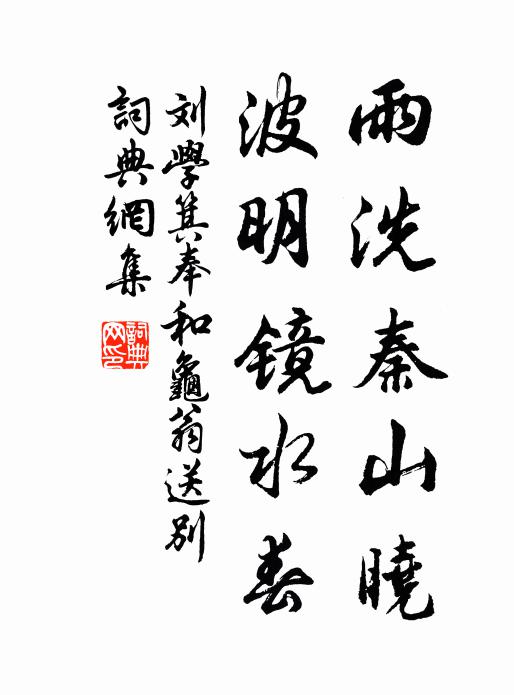 雨洗秦山曉
波明镜水春
刘學箕奉和龜翁送别
詞典網集
詞典网印